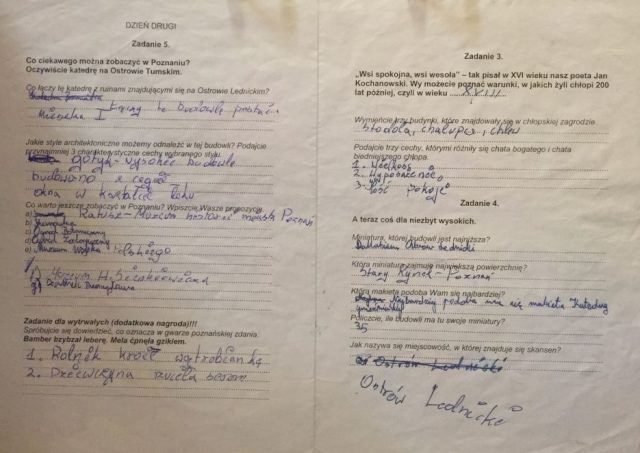 DZIEŃ DRUGI
Zadanie 5.
Co ciekawego można zobaczyć w Poznaniu?
Oczywiście katedrę na Ostrowie Tumskim.
Co łączy tę katedrę z ruinami znajdującymi się na Ostrowie Lednickim?
Łączy te budowle postać
Mieszka I
Jakie style architektoniczne możemy odnaleźć w tej budowli? Podajcie
przynajmniej 3 charakterystyczne cechy wybranego stylu.
gotyk - wysokie budowle
budowano z cegieł
okna w kształcie łuku
Co warto jeszcze zobaczyć w Poznaniu? Wpiszcie Wasze propozycje.
a) Ratusz - Muzeum historii miasta Poznań
b)
c) Ogród
d) Ogród Zoologiczny
e) Muzeum Wojska
f) Muzeum H. Sienkiewicza
g)
Zadanie dla wytrwałych (dodatkowa nagroda)!!!
Spróbujcie się dowiedzieć, co oznacza w gwarze poznańskiej zdania:
Bamber bzybzał leberę. Mela ćpnęła gzikiem.
1. Rolnik kroił wątrobiankę
2. Dziewczyna rzuciła serem
Zadanie 3.
„Wsi spokojna, wsi wesoła” – tak pisał w XVI wieku nasz poeta Jan
Kochanowski. Wy możecie poznać warunki, w jakich żyli chłopi 200
lat później, czyli w wieku XVIII
Wymieńcie trzy budynki, które znajdowały się w chłopskiej zagrodzie.
Stodoła, chałupa, chlew
Podajcie trzy cechy, którymi różniły się chata bogatego i chata
biedniejszego chłopa.
1. Wielkość
2. Wyposażenie,
3. Ilość pokoje
Zadanie 4.
A teraz coś dla niezbyt wysokich.
Miniatura, której budowli jest najniższa?
Ostrów Lednicki
Która miniatura zajmuje największą powierzchnię?
Stary Rynek - Poznań
Która makieta podoba Wam się najbardziej?
Najbardziej podoba nam się makieta Katedry
Policzcie, ile budowli ma tu swoje miniatury?
35
Jak nazywa się miejscowość, w której znajduje się skansen?
Ostrów Lednicki
Ostrów Lednicki